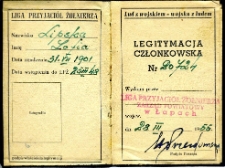 LIGA PRZYJACIÓŁ ŻOŁNIERZA
Nazwisko Lipska
Imię Zofia
Data urodzenia 31. VII 1901
Data wstąpienia do LPŻ
Fotografia
Lud z wojskiem - wojsko z ludem
LEGITYMACJA
CZŁONKOWSKA
Nr 20724
Wydana przez
LIGA PRZYJACIÓŁ ŻOŁNIERZA
w Łapach
dn. 28 III 1955